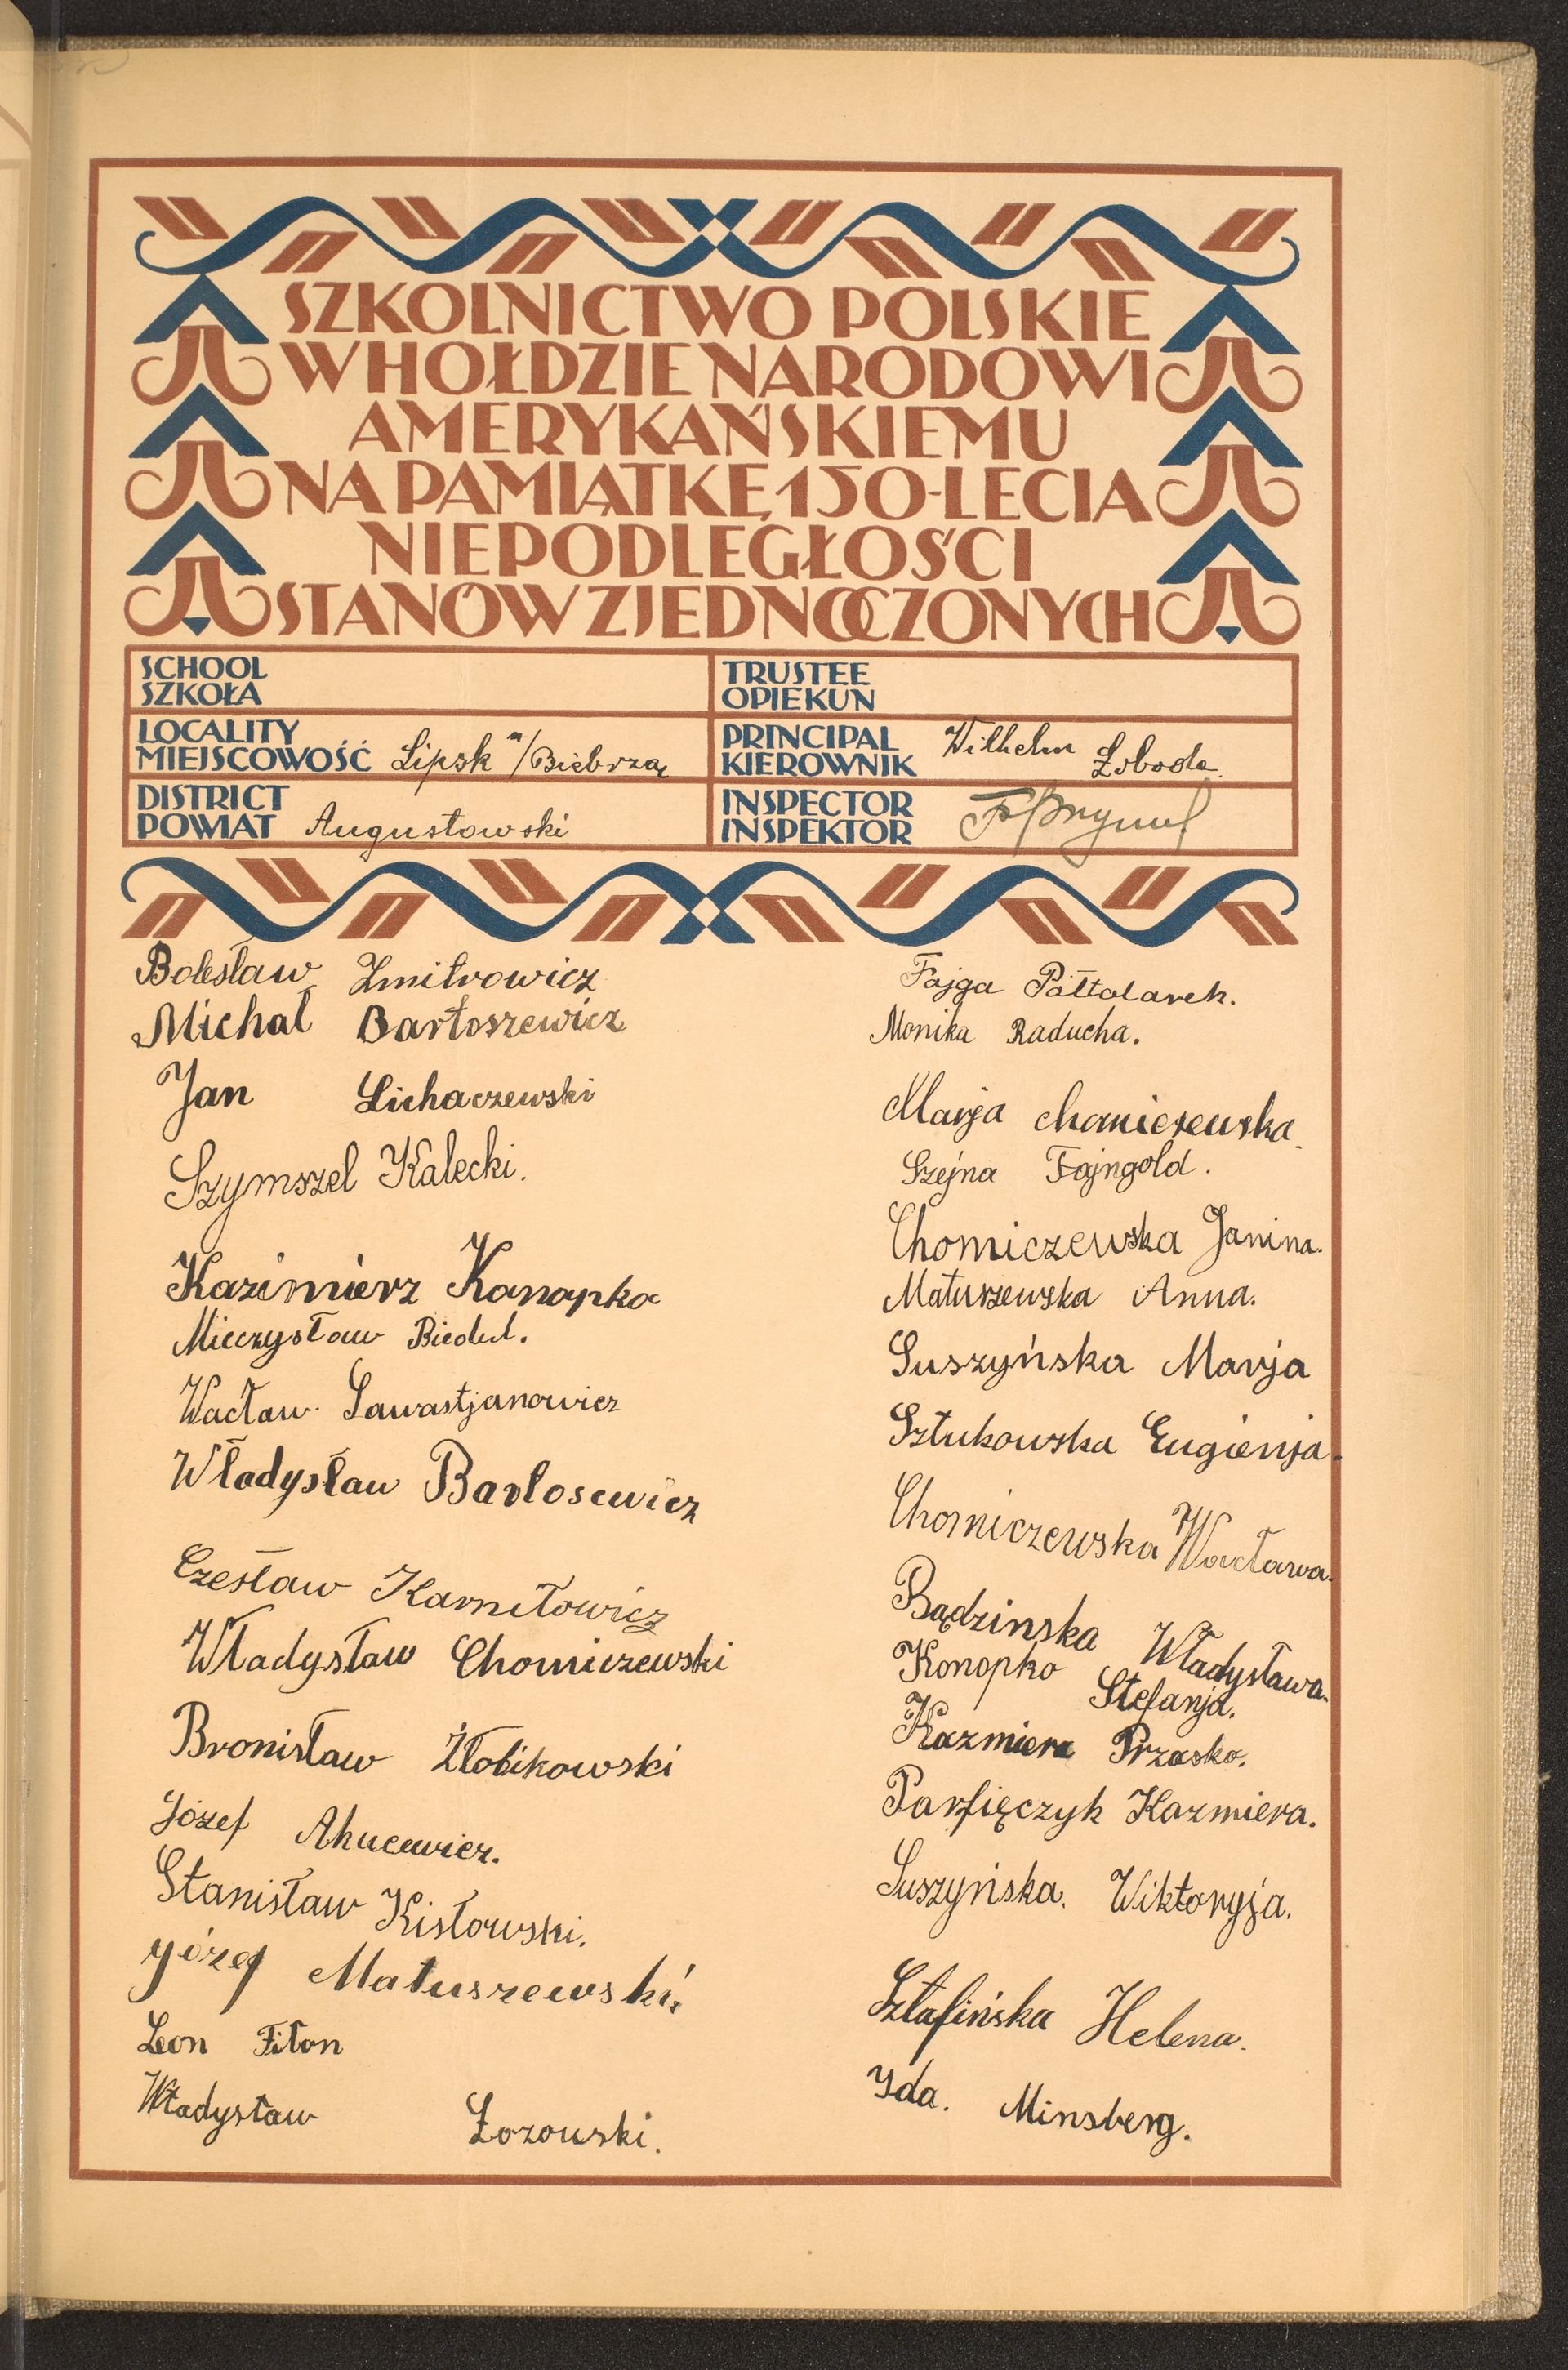 SZKOLNICTWO POLSKIE
W HOŁDZIE NARODOWI
AMERYKAŃSKIEMU
NA PAMIĄTKĘ 150-LECIA
NIEPODLEGŁOŚCI
STANÓW ZJEDNOCZONYCH
SCHOOL
SZKOŁA
TRUSTEE
OPIEKUN
LOCALITY
MIEJSCOWOŚĆ Lipsk n/Biebrzą
PRINCIPAL
KIEROWNIK Wilhelm Łoboda
DISTRICT
POWIAT Augustowski
INSPECTOR
INSPEKTOR
Bolesław Zmitrowicz
Michał Bartoszewicz
Jan Lichaczewski
Szymszel Kalecki.
Kazimierz Konopka
Mieczysław Biedul.
Wacław Sawastjanowicz
Władysław Bartosewicz
Czesław Karniłowicz
Władysław Chomiczewski
Bronisław Żłobikowski
Józef Ahucewicz.
Stanisław Kisłowski.
Józef Matuszewski.
Leon Fiłon
Władysław Łozowski.
Fajga Półtolarek.
Monika Raducha.
Marja Chomiczewska.
Szejna Fajngold.
Chomiczewska Janina.
Matuszewska Anna.
Suszyńska Marja
Sztukowska Eugienja.
Chomiczewska Wacława.
Bądzinska Władysława.
Konopko Stefanja.
Kazmiera Przasko.
Parfięczyk Kazmiera.
Suszyńska. Wiktoryja.
Sztafińska Helena.
Ida. Minsberg.